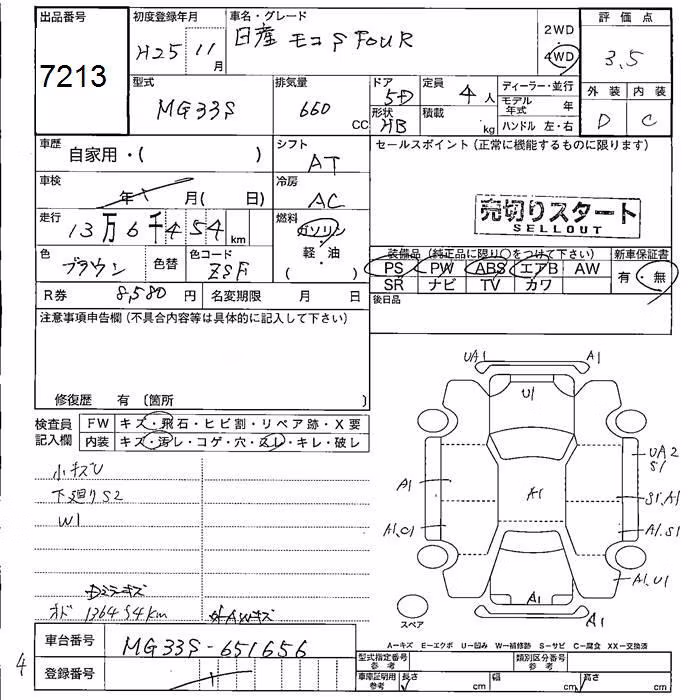 出品番号
7213
初度登録年月
H25 11月
車名・グレード
日産 モコS FOUR
2WD
4WD
評価点
3.5
型式
MG33S
排気量
660
CC
ドア
5D
形状
HB
定員
4人
積載
kg
ディーラー・並行
モデル年式 年
ハンドル 左・右
外装 内装
D C
車歴
自家用・( )
シフト
AT
セールスポイント(正常に機能するものに限ります)
車検
年 月( 日)
冷房
AC
売切りスタート
SELLOUT
走行
13万6千454km
燃料
ガソリン
軽・油
( )
色
ブラウン
色替
色コード
ZSF
装備品(純正品に限り○をつけて下さい)
PS PW ABS エアB AW
SR ナビ TV カワ
新車保証書
有・無
R券 8,580円
名変期限 月 日
後日品
注意事項申告欄(不具合内容等は具体的に記入して下さい)
修復歴 有〔箇所 〕
検査員記入欄
FW キズ・飛石・ヒビ割・リペア跡・X要
内装 キズ・汚レ・コゲ・穴・スレ・キレ・破レ
小キズU
下廻りS2
W1
オド 136454km
AWキズ
UA1
A1
U1
A1
A1
UA2
S1
S1.A1
A1.C1
A1.S1
A1.U1
A1
A1
スペア
A-キズ E-エクボ U-凹み W-補修跡 S-サビ C-腐食 XX-交換済
車台番号
MG33S-651656
登録番号
型式指定番号 参考
類別区分番号 参考
車庫証明用 参考
長さ cm
幅 cm
高さ cm
4